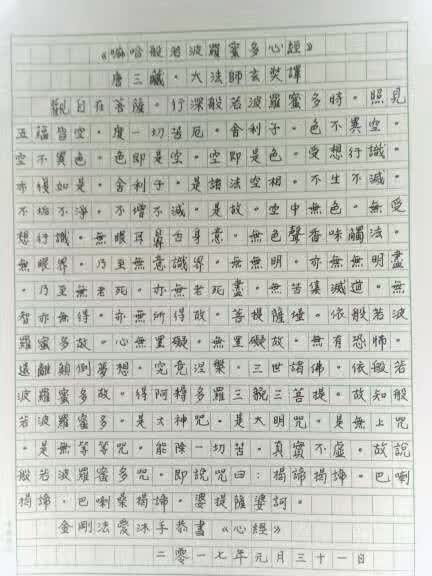 《嘛哈般若波羅蜜多心經》
唐三藏。大法師玄奘譯
觀自在菩薩。行深般若波羅蜜多時。照見
五蘊皆空。度一切苦厄。舍利子。色不異空。
空不異色。色即是空。空即是色。受想行識。
亦復如是。舍利子。是諸法空相。不生不滅。
不垢不淨。不增不減。是故。空中無色。無受
想行識。無眼耳鼻舌身意。無色聲香味觸法。
無眼界。乃至無意識界。無無明。亦無無明盡
。乃至無老死。亦無老死盡。無苦集滅道。無
智亦無得。亦無所得故。菩提薩埵。依般若波
羅蜜多故。心無罣礙。無罣礙故。無有恐怖。
遠離顛倒夢想。究竟涅槃。三世諸佛。依般若
波羅蜜多故。得阿耨多羅三藐三菩提。故知般
若波羅蜜多。是大神咒。是大明咒。是無上咒
。是無等等咒。能除一切苦。真實不虛。故說
般若波羅蜜多咒。即說咒曰：揭諦揭諦。巴喇
揭諦。巴喇桑揭諦。婆提薩婆訶。
金剛法愛沐手恭書《心經》
二零一七年元月三十一日